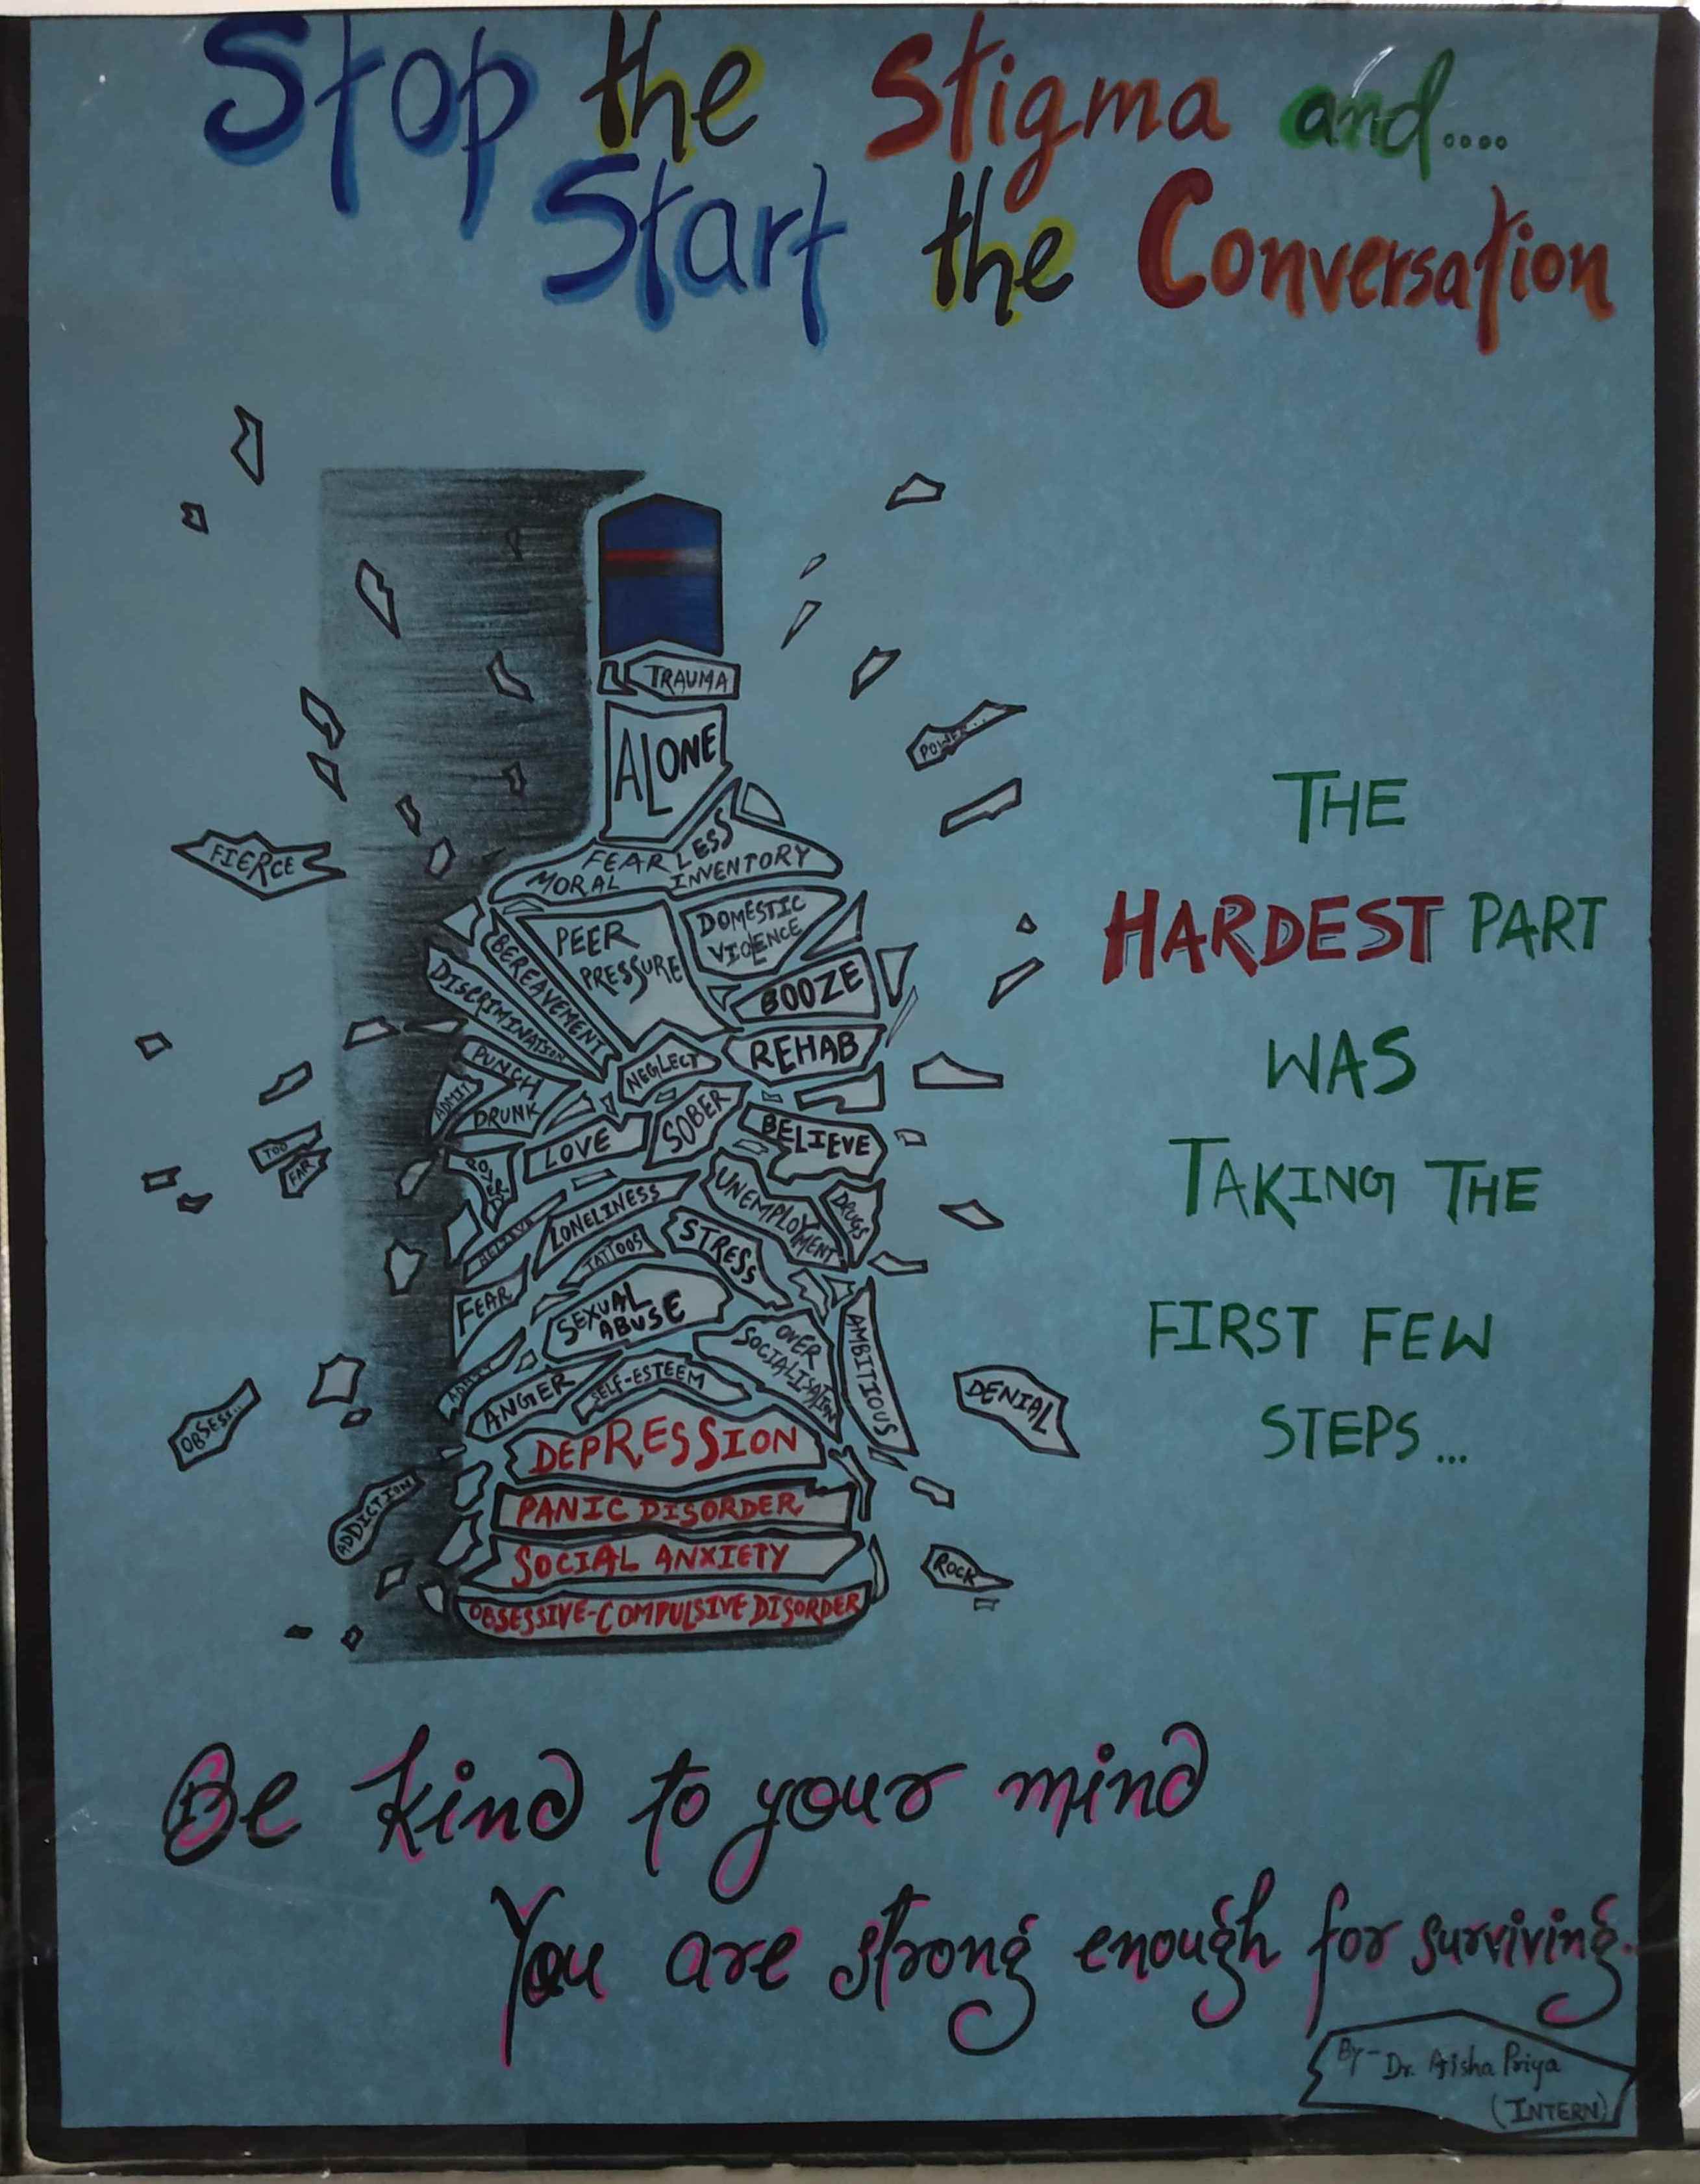 Stop the Stigma and....
Start the Conversation
TRAUMA
ALONE
POWER..
FIERCE
FEARLESS
MORAL INVENTORY
PEER
PRESSURE
DOMESTIC
VIOLENCE
BEREAVEMENT
DISCRIMINATION
BOOZE
REHAB
NEGLECT
PUNCH
DRUNK
ADMIT
SOBER
LOVE
BELIEVE
TOO
FAR
LONELINESS
UNEMPLOYMENT
DRUGS
TATTOOS
STRESS
FEAR
SEXUAL
ABUSE
OVER
SOCIALISATION
AMBITIOUS
ANGER
SELF-ESTEEM
DENIAL
OBSESI...
DEPRESSION
ADDICTION
PANIC DISORDER
SOCIAL ANXIETY
ROCK
OBSESSIVE-COMPULSIVE DISORDER
THE
HARDEST PART
WAS
TAKING THE
FIRST FEW
STEPS...
Be kind to your mind
You are strong enough for surviving.
By- Dr. Aisha Priya
(INTERN)